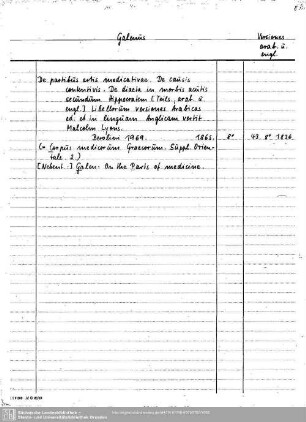 Galenus
Versiones
arab. u.
engl.
De partibus artis medicativae. De causis
contentivis. De diaeta in morbis acutis
secundum Hippocratem [Teils. arab. u.
engl.] Libellorum versiones Arabicas
ed. et in linguam Anglicam vertit
Malcolm Lyons.
Berolini 1969. 1863. 8° 43. 8° 1836
(= Corpus medicorum Graecorum. Suppl. Orien-
tale. 2.)
[Nebent.:] Galen: On the Parts of medicine.